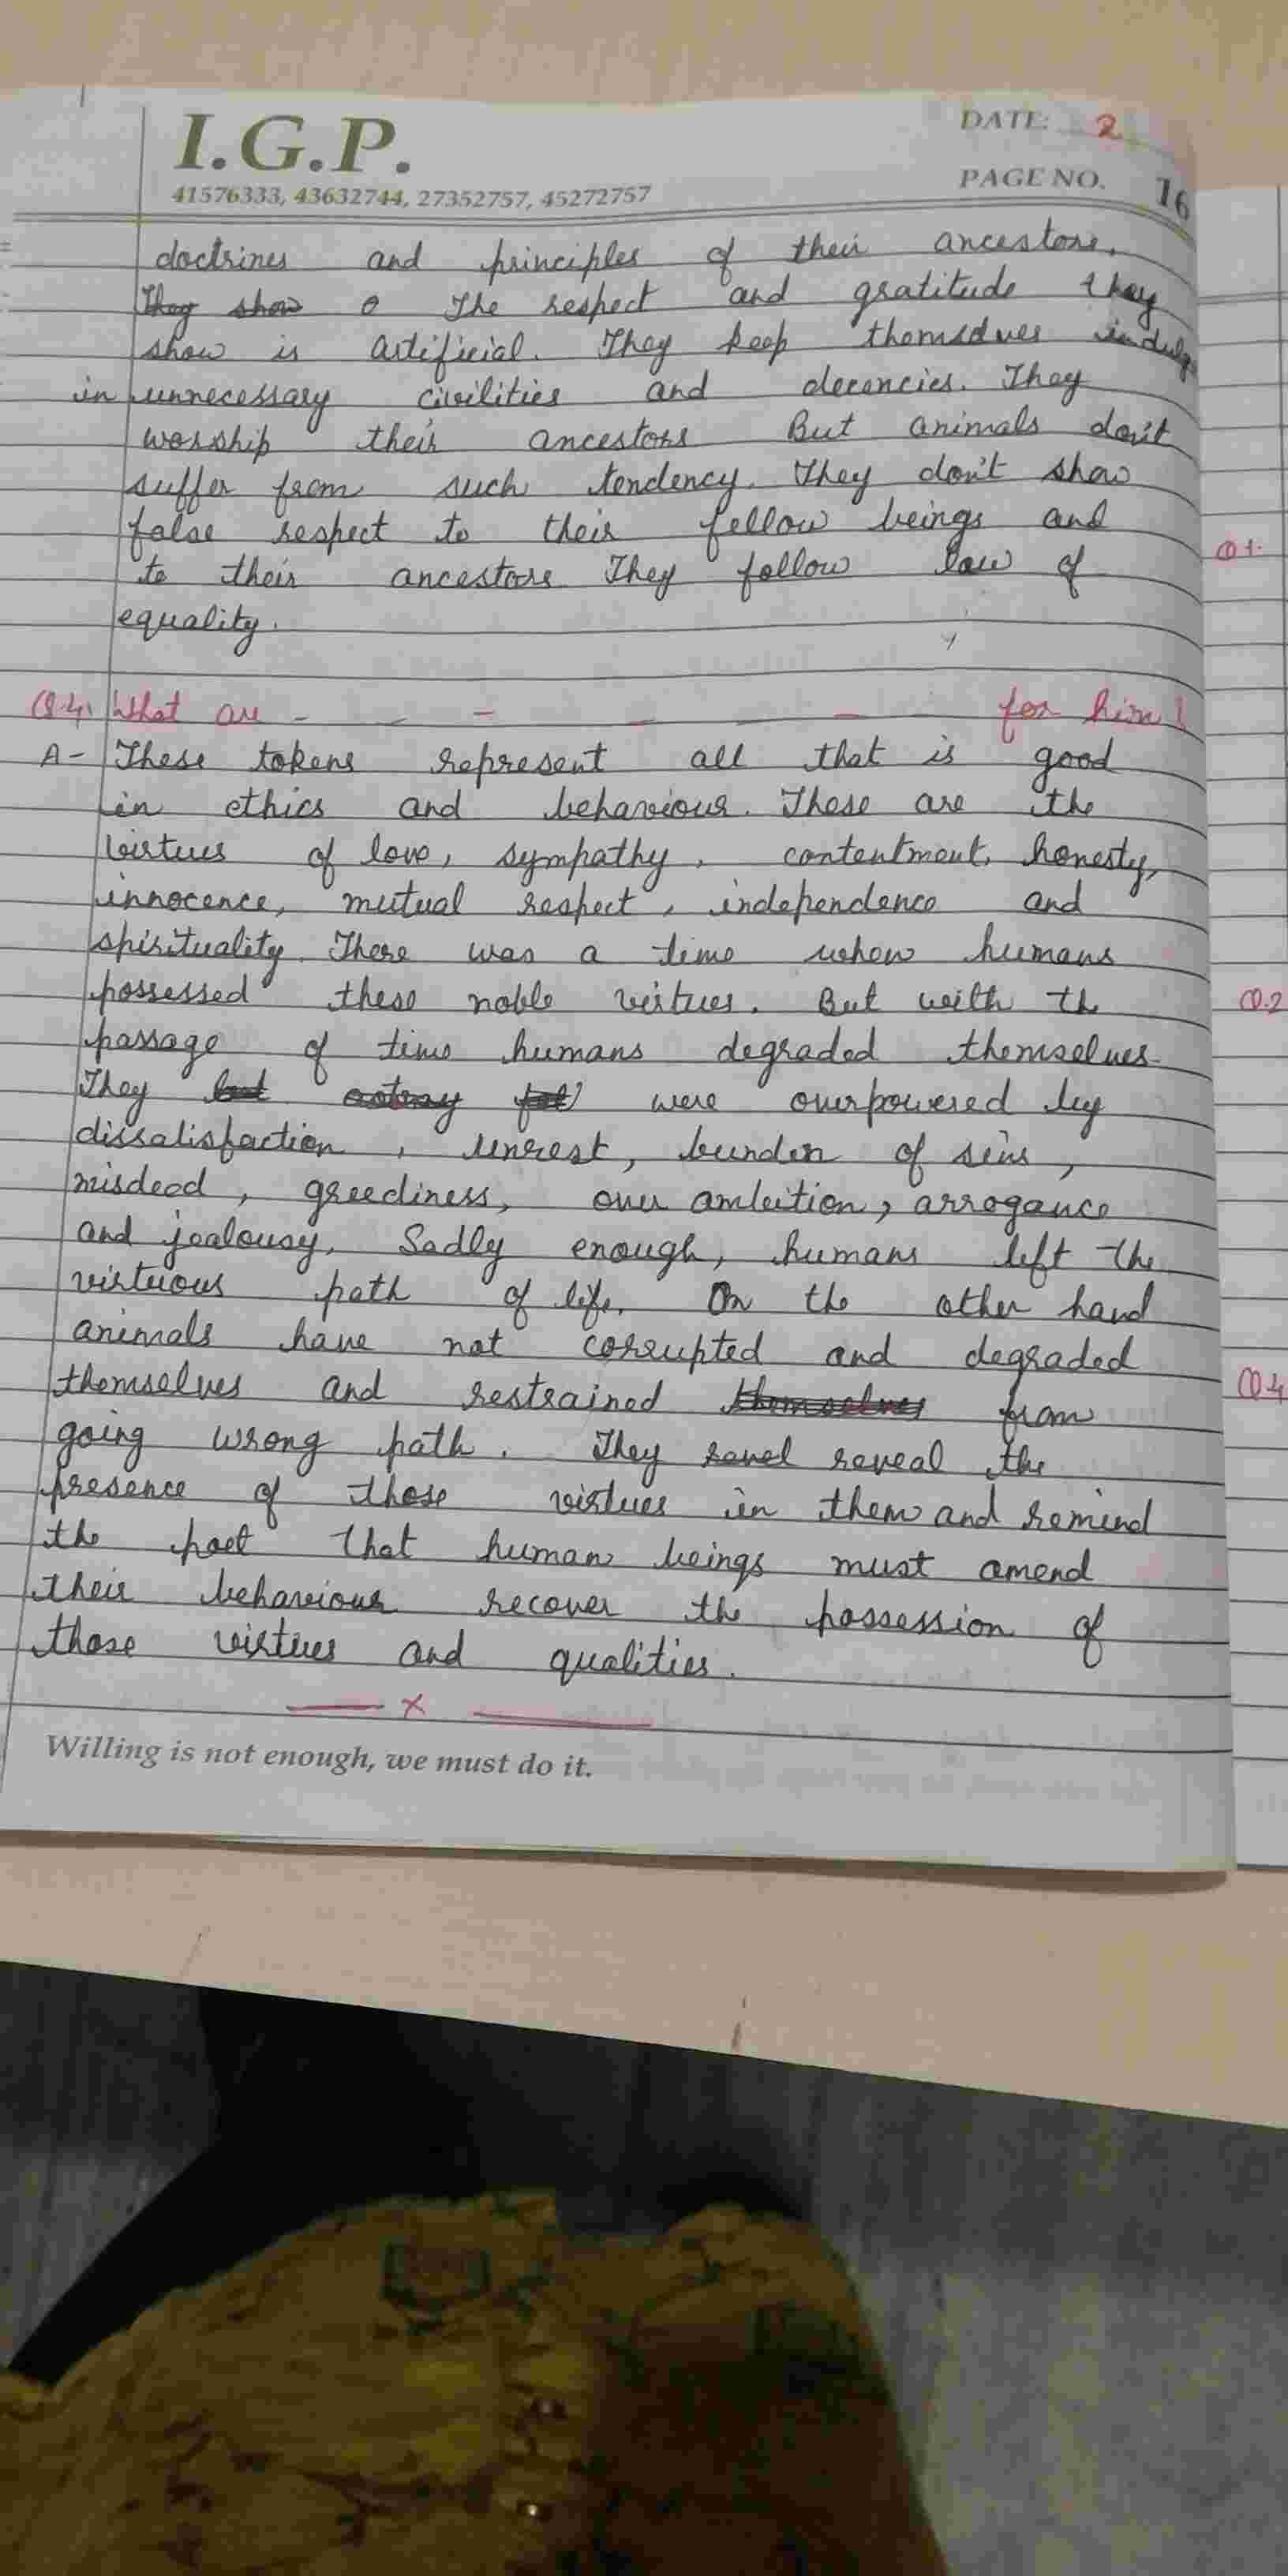 I.G.P.
41576333, 43632744, 27352757, 45272757
DATE: 2
PAGE NO. 16
doctrines and principles of their ancestors.
They show The respect and gratitude they
show is artificial. They keep themselves indulge
in unnecessary civilities and decencies. They
worship their ancestors But animals don't
suffer from such tendency. They don't show
false respect to their fellow beings and
to their ancestors They follow law of
equality.
Q.4. What are - - - - - - for him?
A- These tokens represent all that is good
in ethics and behaviour. These are the
virtues of love, sympathy, contentment, honesty,
innocence, mutual respect, independence and
spirituality. There was a time when humans
possessed these noble virtues. But with the
passage of time humans degraded themselves.
They were overpowered by
dissatisfaction, unrest, burden of sins,
misdeed, greediness, over ambition, arrogance
and jealousy. Sadly enough, humans left the
virtuous path of life. On the other hand
animals have not corrupted and degraded
themselves and restrained themselves from
going wrong path. They revel reveal the
presence of those virtues in them and remind
the poet that human beings must amend
their behaviour recover the possession of
those virtues and qualities.
x
Willing is not enough, we must do it.
Q1.
Q.2
Q.4